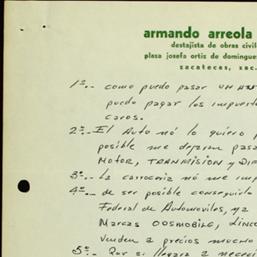 armando arreola
destajista de obras civil
plaza josefa ortiz de domingue
zacatecas, zac.
1ª.- como puedo pasar un
puedo pagar los impues
caros.
2ª.- El Auto no lo quiero p
posible me dejan pasa
MOTOR, TRANMISION y DI
3ª.- La carroceria no me im
4ª.- de ser posible conseguirlo
Federal de Automoviles, ya
Marcas ODSMOBILE, LINCO
venden a precios mucho
5ª.- Por si llegara a neceri